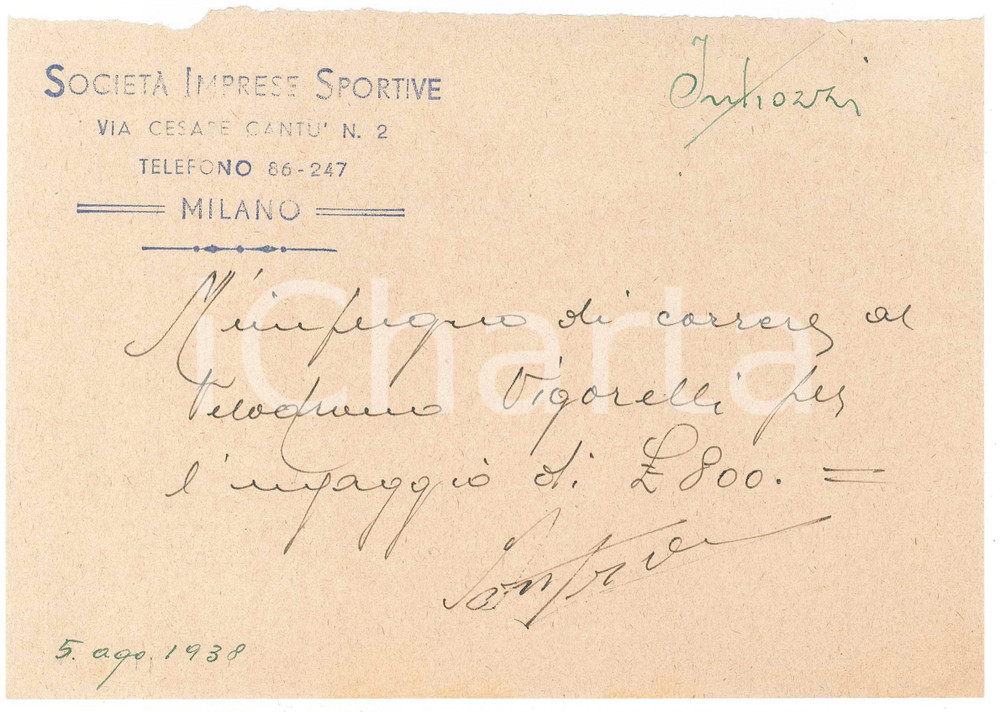 SOCIETÀ IMPRESE SPORTIVE
VIA CESARE CANTU' N. 2
TELEFONO 86-247
MILANO
Introzzi
M'impegno di correre al
Velodromo Vigorelli per
l'ingaggio di £ 800. =
5. ago. 1938
iCharta